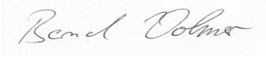 Bernd Volmer